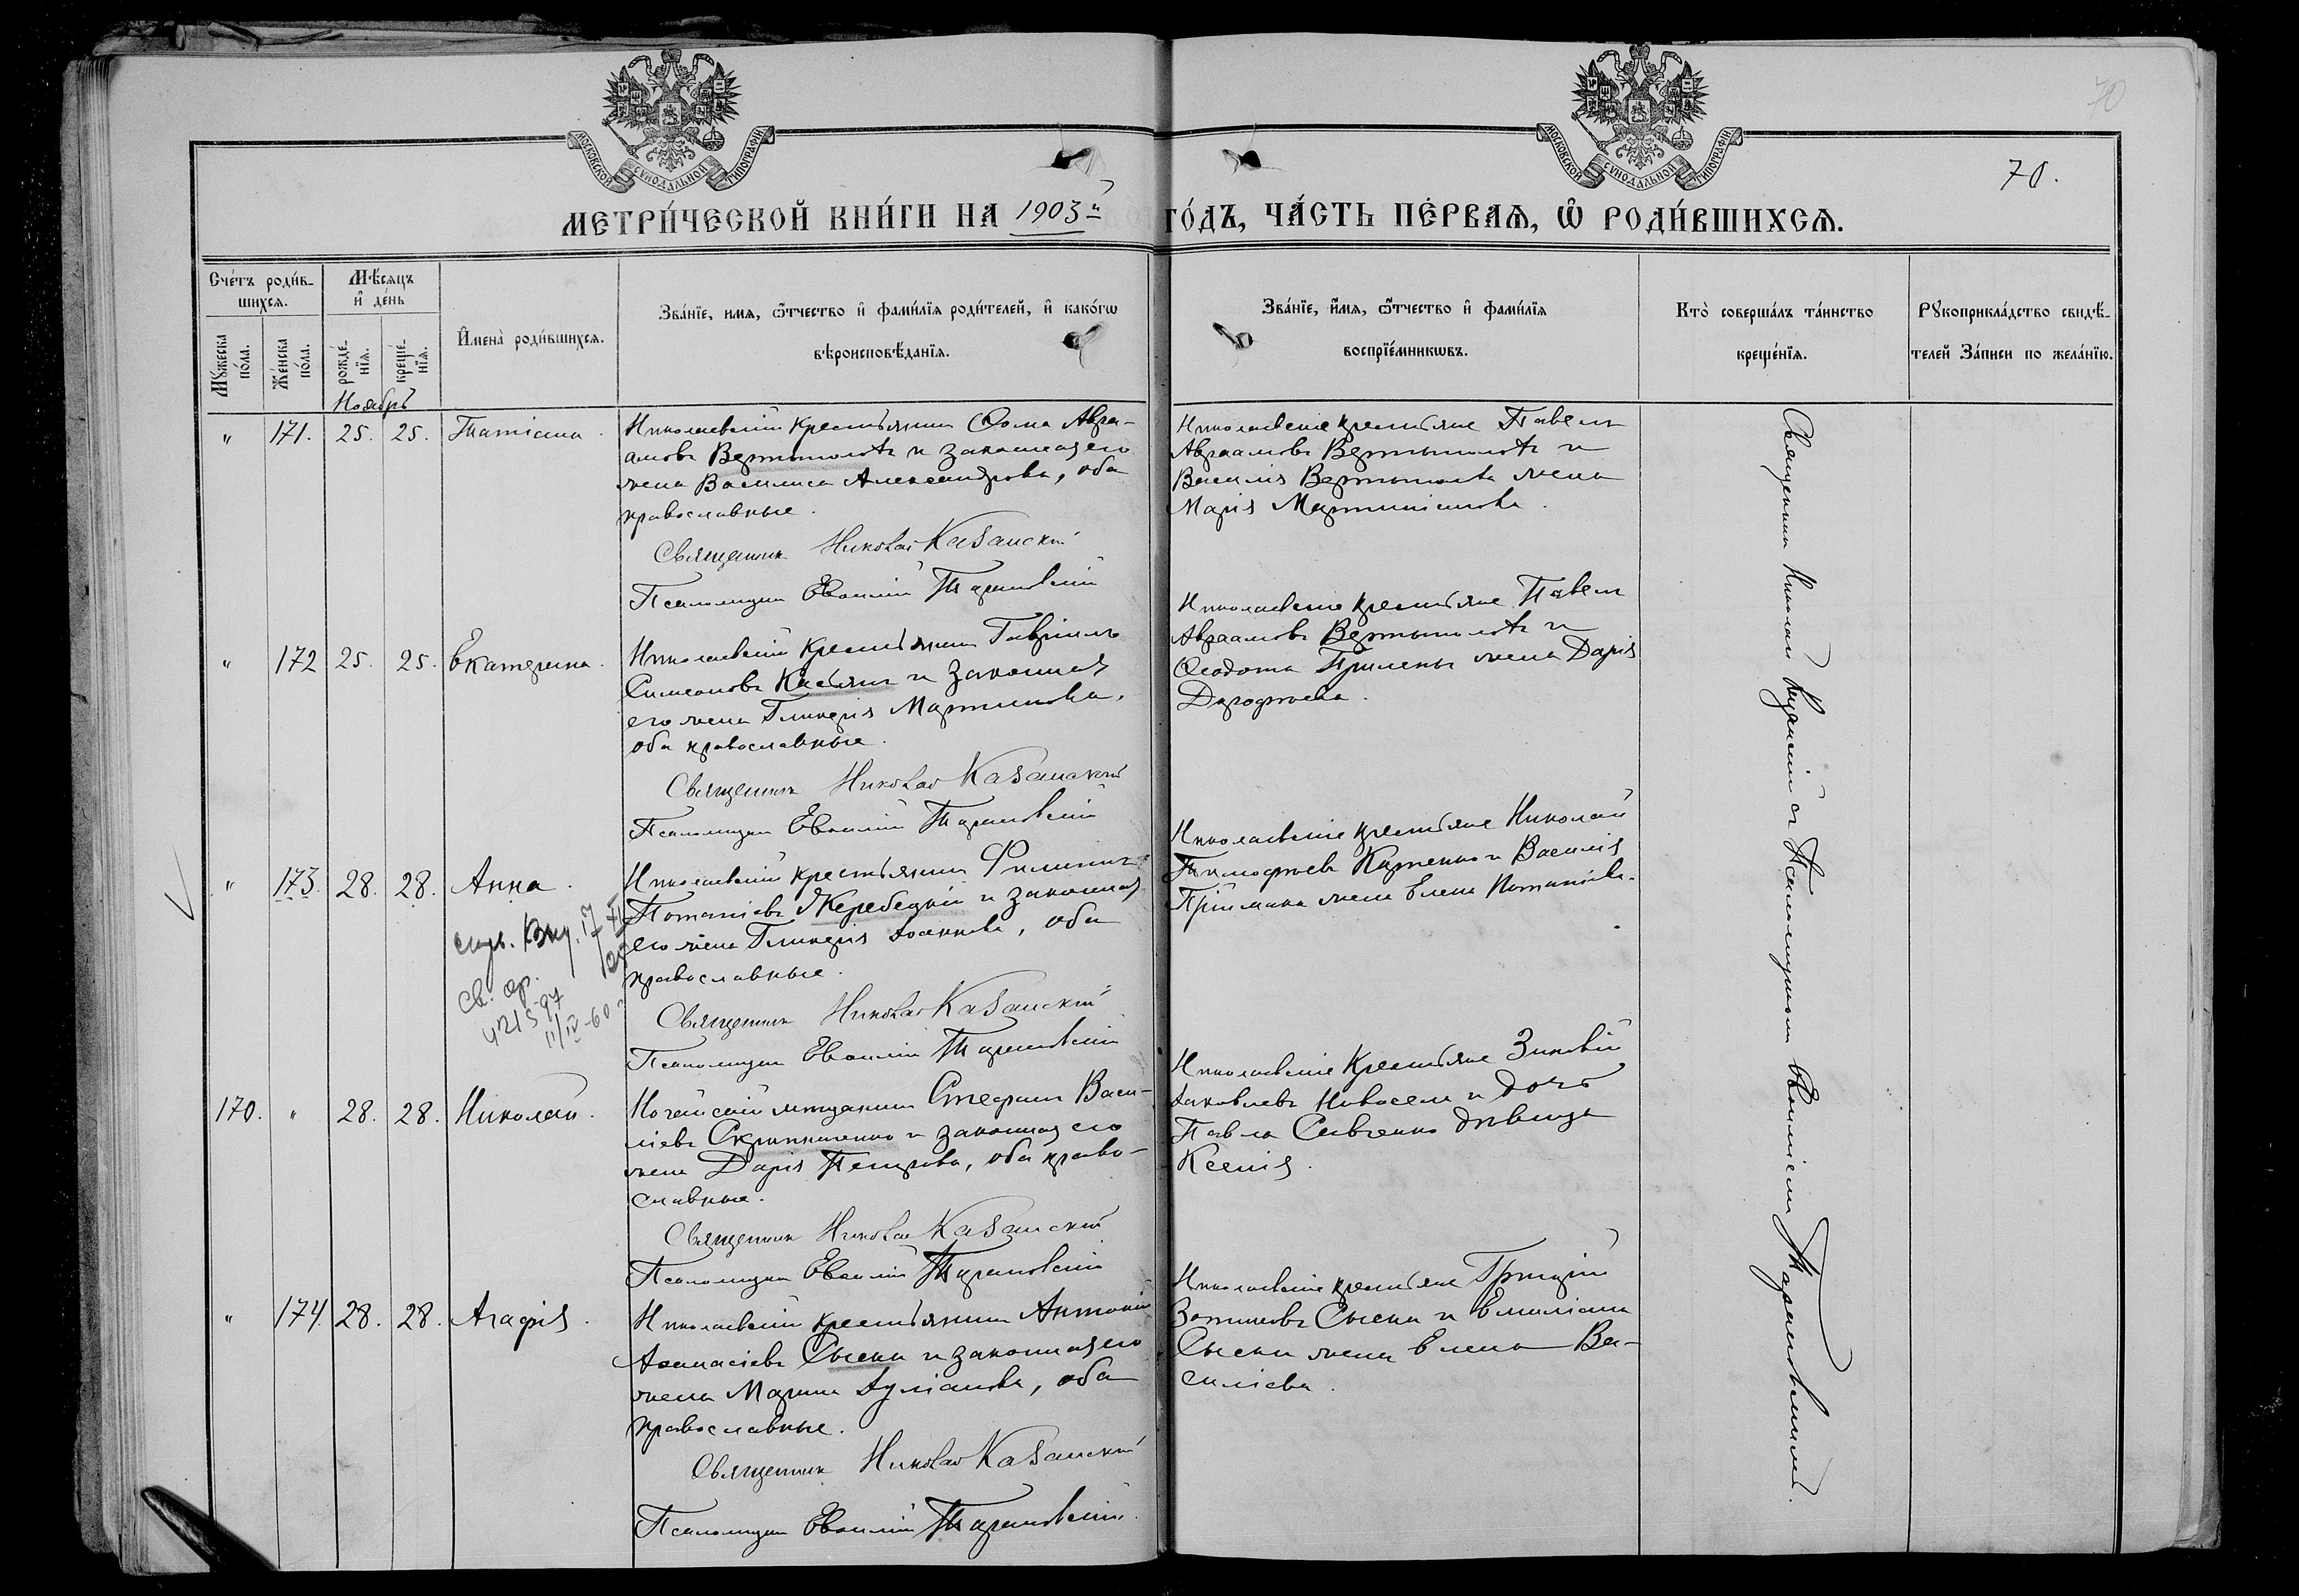 МОСКОВСКОЙ СУНОДАЛЬНОЙ ТИПОГРАФІИ
МОСКОВСКОЙ СУНОДАЛЬНОЙ ТИПОГРАФІИ
70
70.
МЕТРИ́ЧЕСКОЙ КНИ́ГИ НА 1903й ГО́ДЪ, ЧА́СТЬ ПЕ́РВАѦ, Ѡ РОДИ́ВШИХСѦ.
Сче́тъ роди́в-
шихсѧ.
Мꙋжеска по́ла.
Же́нска по́ла.
Мѣ́сѧцъ
и҆ де́нь
рожде́-
нїѧ.
креще́-
нїѧ.
И҆мена̀ роди́вшихсѧ.
Зва́нїе, имѧ, ѻ҆́тчество и҆ фами́лїѧ роди́телей, и҆ како́гѡ
вѣроисповѣ́данїѧ.
Зва́нїе, и҆́мѧ, ѻ҆́тчество и҆ фами́лїѧ
воспрїе́мникѡвъ.
Кто̀ соверша́лъ та́инство
креще́нїѧ.
Рꙋкоприкла́дство свидѣ́-
телей За́писи по жела́нїю.
Ноябрь
" 171. 25. 25. Татіана.
Николаевскій крестьянинъ Ѳома Авра-
амовъ Вертыполохъ и законная его
жена Василиса Александрова, оба
православные.
Священникъ Николай Казанскій
Псаломщикъ Евѳимій Тарановскій
Николаевскіе крестьяне Павелъ
Авраамовъ Вертыполохъ и
Василія Вертыполоха жена
Марія Мартиніанова.
" 172 25. 25. Екатерина.
Николаевскій крестьянинъ Гавріилъ
Симеоновъ Касьянъ и законная
его жена Гликерія Мартинова,
оба православные.
Священникъ Николай Казанскій
Псаломщикъ Евѳимій Тарановскій
Николаевскіе крестьяне Павелъ
Авраамовъ Вертыполохъ и
Ѳеодота жена Дарія
Дороѳеева.
" 173. 28. 28. Анна.
св. ор.
11/IV-60
Николаевскій крестьянинъ Филиппъ
Потапіевъ Жеребецкій и законная
его жена Гликерія Іоаннова, оба
православные.
Священникъ Николай Казанскій
Псаломщикъ Евѳимій Тарановскій
Николаевскіе крестьяне Николай
Тимоѳеевъ и Василія
Пріймака жена Елена Потапіева.
170. " 28. 28. Николай.
мѣщанинъ Стефанъ Васи-
ліевъ Скрипниченко и законная его
жена Дарія Петрова, оба право-
славные.
Священникъ Николай Казанскій
Псаломщикъ Евѳимій Тарановскій
Николаевскіе крестьяне Зиновій
Іаковлевъ Новоселъ и дочь
Павла Савченко дѣвица
Ксенія.
" 174. 28. 28. Агафія.
Николаевскій крестьянинъ Антоній
Аѳанасіевъ Сысенко и законная его
жена Марина Іуліанова, оба
православные.
Священникъ Николай Казанскій
Псаломщикъ Евѳимій Тарановскій.
Николаевскіе крестьяне Григорій
Зотиковъ и Емиліана
жена Елена Ва-
силіева.
Священникъ Николай Казанскій съ Псаломщикомъ Евѳиміемъ Тарановскимъ.